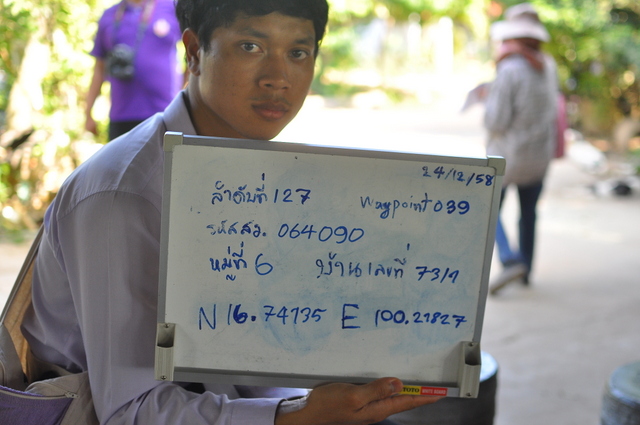 24/12/58
ลำดับที่ 127 Waypoint 039
รหัสสว. 064090
หมู่ที่ 6 บ้านเลขที่ 73/1
N 16.74135 E 100.21827
TOYO